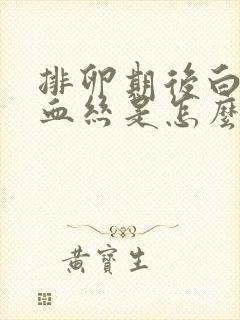 排卵期後白
血絲是怎麼
黃寶生